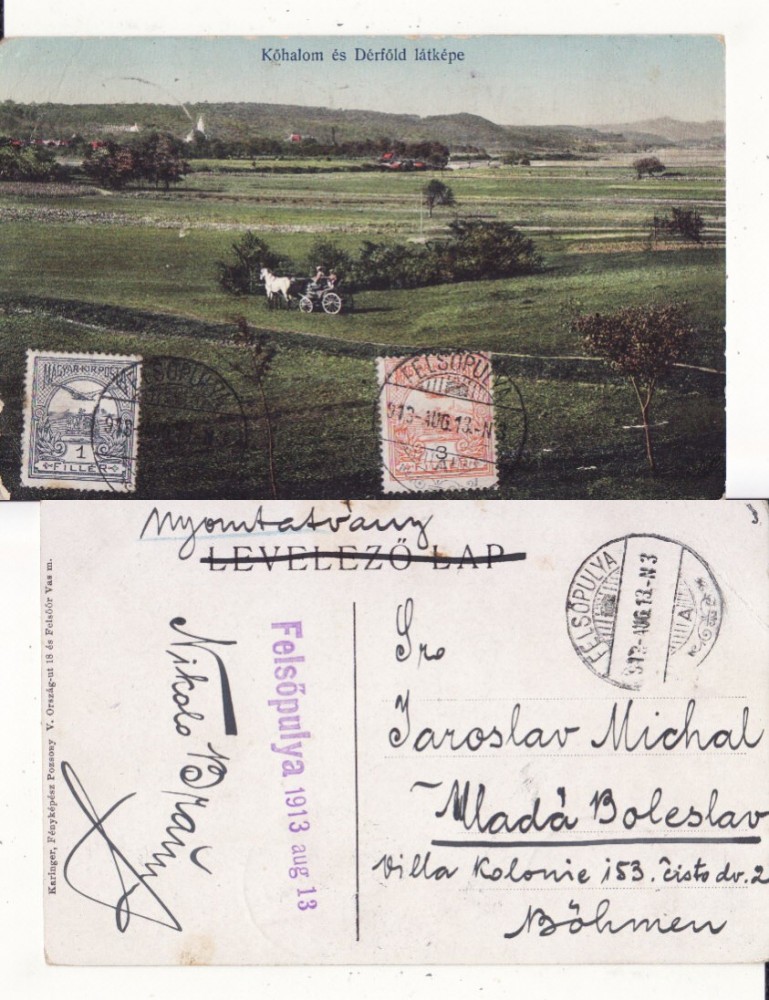 Kőhalom és Dérföld látképe
MAGYAR·KIR·POSTA
1
FILLÉR
913
FELSŐPULYA
913-AUG.13.-N
3
FILLÉR
Nyomtatvány
LEVELEZŐ LAP
FELSŐPULYA
913-AUG.13.-N3
A
Karinger, Fényképész Pozsony V. Ország-ut 18 és Felsőőr Vas m.
Nikolo
Felsőpulya 1913 aug 13
Sr
Jaroslav Michal
Mladá Boleslav
Villa Kolonie 153. čisto dv. 2
Böhmen